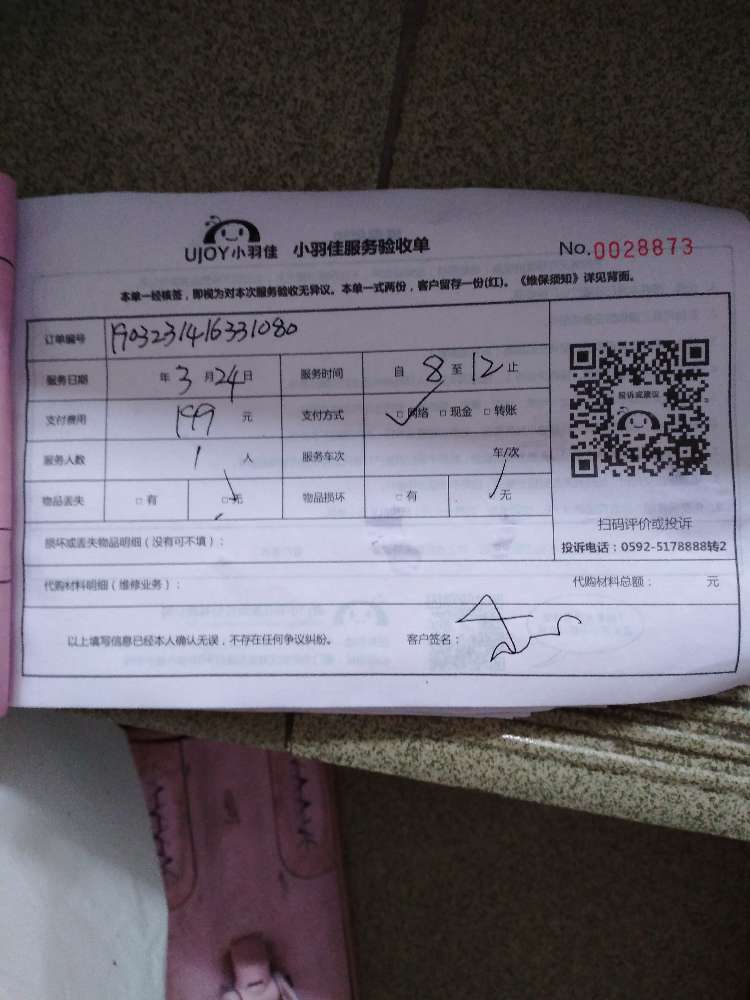 UJOY小羽佳 小羽佳服务验收单 No.0028873
本单一经核签，即视为对本次服务验收无异议。本单一式两份，客户留存一份(红)。《维保须知》详见背面。
订单编号 1903231416331080
服务日期 年3月24日 服务时间 自8至12止
支付费用 199元 支付方式 □网络 □现金 □转账
服务人数 1人 服务车次 车/次
物品丢失 □有 □无 物品损坏 □有 □无
投诉或建议
扫码评价或投诉
投诉电话：0592-5178888转2
损坏或丢失物品明细（没有可不填）：
代购材料明细（维修业务）： 代购材料总额： 元
以上填写信息已经本人确认无误，不存在任何争议纠纷。 客户签名：